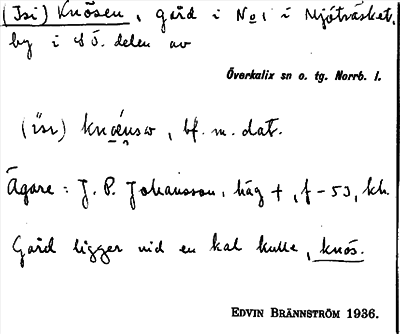 (Isi) Knösen, gård i No 1 i Mjöträsket,
by i SÖ. delen av
Överkalix sn o. tg. Norrb. l.
(isi) , bf. m. dat.
Ägare: J. P. Johansson, häg +, f - 53, kh.
Gård ligger vid en kal kulle, knös.
EDVIN BRÄNNSTRÖM 1936.